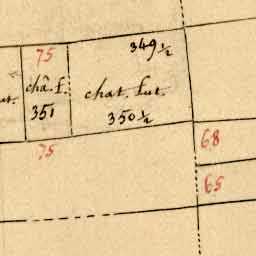 75
349 1/2
châ. f.
351
chat. fut.
350 1/2
75
68
65